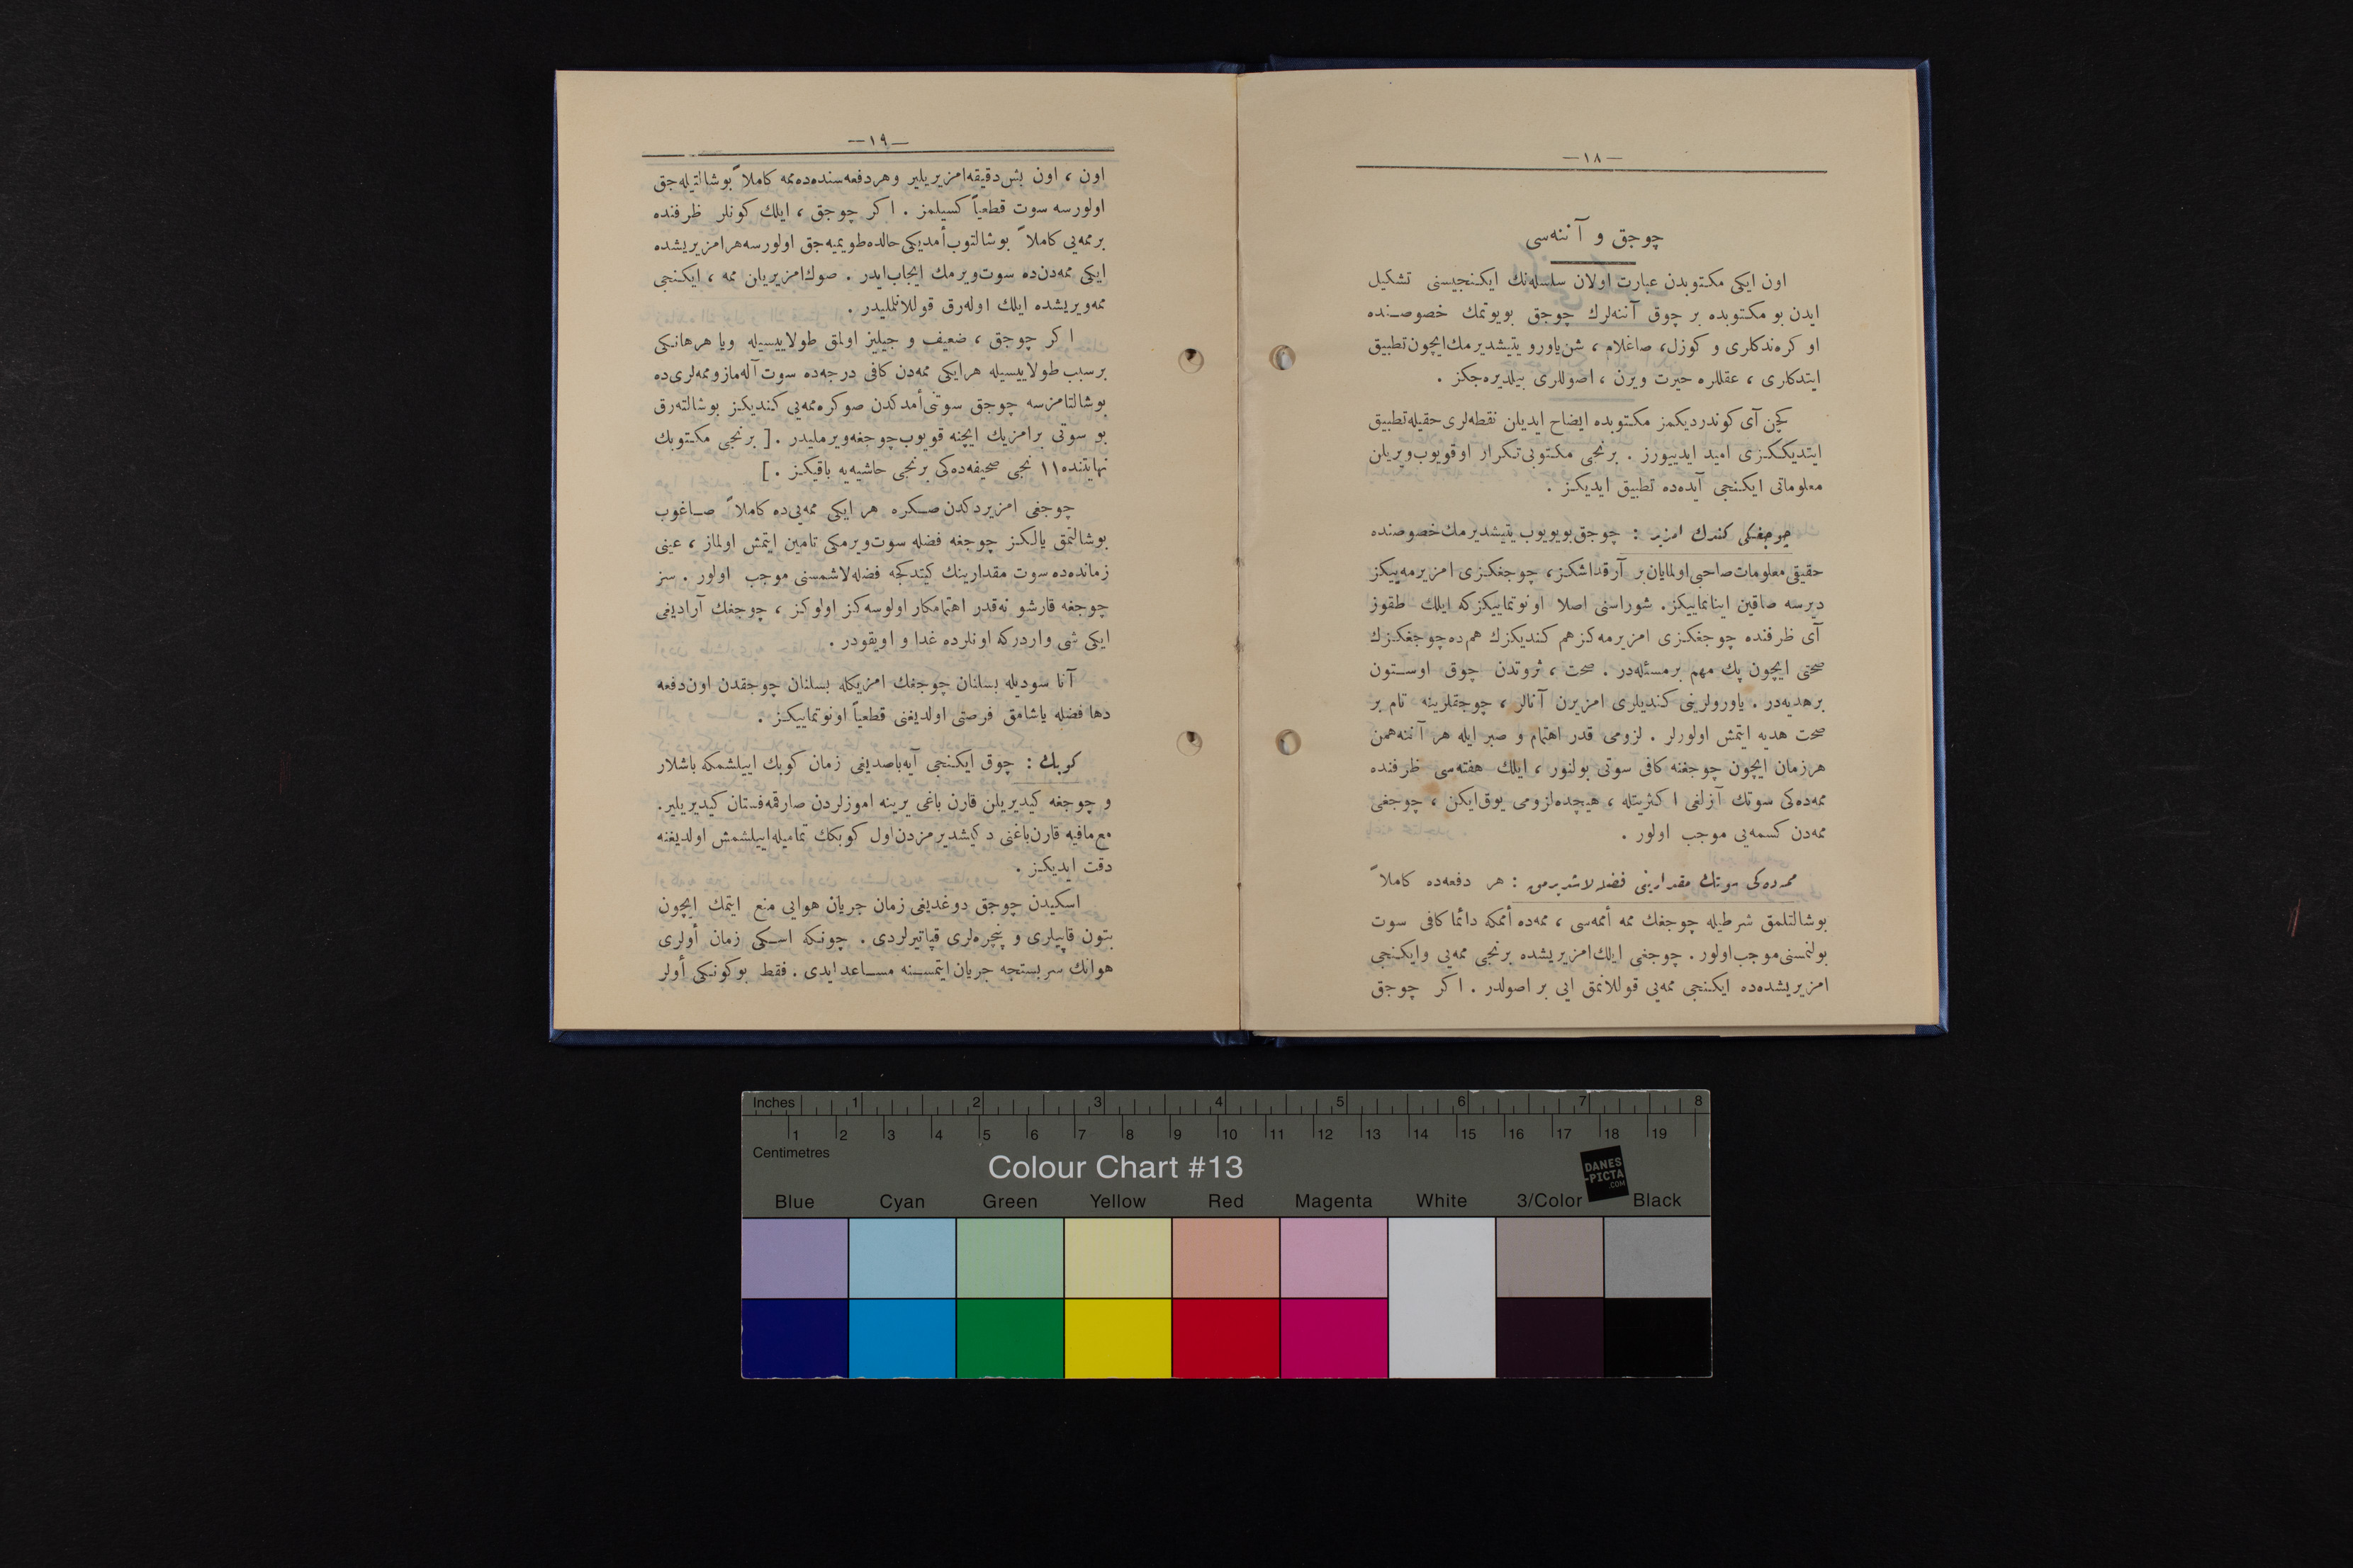 —١٨—
چوجق و آننه‌سى
اون ایكى مكتوبدن عبارت اولان سلسله‌نك ایكنجیسنى تشكیل
ایدن بو مكتوبده بر چوق آننه‌لرك چوجق بویوتمك خصوصنده
اوكره‌ندكلرى و كوزل، صاغلام ، شن یاورو یتیشدیرمك ایچون تطبیق
ایتدكلرى ، عقللره حیرت ویرن ، اصوللرى بیلدیره‌جكز .
كچن آى كوندردیكمز مكتوبده ایضاح ایدیلن نقطه‌لرى حقیله تطبیق
ایتدیككزى امید ایدییورز . برنجى مكتوبى تكرار اوقویوب ویریلن
معلوماتى ایكنجى آیده‌ده تطبیق ایدیكز .
چوجغكى كندك امزیر : چوجق بویویوب یتیشدیرمك خصوصنده
حقیقى معلومات صاحبى اولمایان بر آرقداشكز، چوجغكزى امزیرمه‌ییكز
دیرسه صاقین اینانماییكز. شوراسنى اصلا اونوتماییكزكه ایلك طقوز
آى ظرفنده چوجغكزى امزیرمه‌كز هم كندیكزك هم‌ده چوجغكزك
صحتى ایچون پك مهم بر مسئله‌در . صحت ، ثروتدن چوق اوستون
بر هدیه‌در . یاورولرینى كندیلرى امزیرن آنالر ، چوجقلرینه تام بر
صحت هدیه ایتمش اولورلر . لزومى قدر اهتمام و صبر ایله هر آننه همن
هرزمان ایچون چوجغنه كافى سوتى بولنور ، ایلك هفته‌سى ظرفنده
ممه‌ده‌كى سوتك آزلغى اكثریتله ، هیچده لزومى یوق ایكن ، چوجغى
ممه‌دن كسمه‌یى موجب اولور .
ممه‌ده‌كى سوتك مقدارینى فضله‌لاشدیرمق : هر دفعه‌ده كاملاً
بوشالتلمق شرطیله چوجغك ممه أممه‌سى ، ممه‌ده أممكه دائما كافى سوت
بولنمسنى موجب اولور . چوجغى ایلك امزیریشده برنجى ممه‌یى و ایكنجى
امزیریشده‌ده ایكنجى ممه‌یى قوللانمق ایى بر اصولدر . اكر چوجق
—١٩—
اون ، اون بش دقیقه امزیریلیر و هر دفعه‌سنده‌ده ممه كاملاً بوشالتیله‌جق
اولورسه سوت قطعیاً كسیلمز . اكر چوجق ، ایلك كونلر ظرفنده
بر ممه‌یى كاملاً بوشالتوب أمدیكى حالده طویمیه‌جق اولورسه هر امزیریشده
ایكى ممه‌دن‌ده سوت ویرمك ایجاب ایدر . صوك امزیریلن ممه ، ایكنجى
ممه ویریشده ایلك اوله‌رق قوللانلملیدر .
اكر چوجق ، ضعیف و جیلیز اولمق طولاییسیله ویا هرهانكى
بر سبب طولاییسیله هر ایكى ممه‌دن كافى درجه‌ده سوت آله‌ماز و ممه‌لرى‌ده
بوشالتامزسه چوجق سوتنى أمدكدن صوكره ممه‌یى كندیكز بوشالته‌رق
بو سوتى بر امزیك ایچنه قویوب چوجغه ویرملیدر . [ برنجى مكتوبك
نهایتنده ١١ نجى صحیفه‌ده‌كى برنجى حاشیه‌یه باقیكز . ]
چوجغى امزیردكدن صكره هر ایكى ممه‌یى‌ده كاملاً صاغوب
بوشالتمق یالكز چوجغه فضله سوت ویرمكى تامین ایتمش اولماز ، عینى
زمانده‌ده سوت مقدارینك كیتدكجه فضله‌لاشمسنى موجب اولور . سز
چوجغه قارشو نه‌قدر اهتمامكار اولوسه‌كز اولوكز ، چوجغك آرادیغى
ایكى شى واردركه اونلرده غدا و اویقودر .
آنا سودیله بسلنان چوجغك امزیكله بسلنان چوجقدن اون دفعه
دها فضله یاشامق فرصتى اولدیغنى قطعیاً اونوتماییكز .
كوبك : چوق ایكنجى آیه باصدیغى زمان كوبك اییلشمكه باشلار
و چوجغه كیدیریلن قارن باغى یرینه اموزلردن صارقمه فستان كیدیریلیر.
مع‌مافیه قارن باغنى دكیشدیرمزدن اول كوبكك تمامیله اییلشمش اولدیغنه
دقت ایدیكز .
اسكیدن چوجق دوغدیغى زمان جریان هوایى منع ایتمك ایچون
بتون قاپیلرى و پنجره‌لرى قپاتیرلردى . چونكه اسكى زمان أولرى
هوانك سربستجه جریان ایتمسنه مساعد ایدى . فقط بوكونكى أولر
Inches 1 2 3 4 5 6 7 8
1 2 3 4 5 6 7 8 9 10 11 12 13 14 15 16 17 18 19
Centimetres
Colour Chart #13
DANES
-PICTA
.COM
Blue Cyan Green Yellow Red Magenta White 3/Color Black